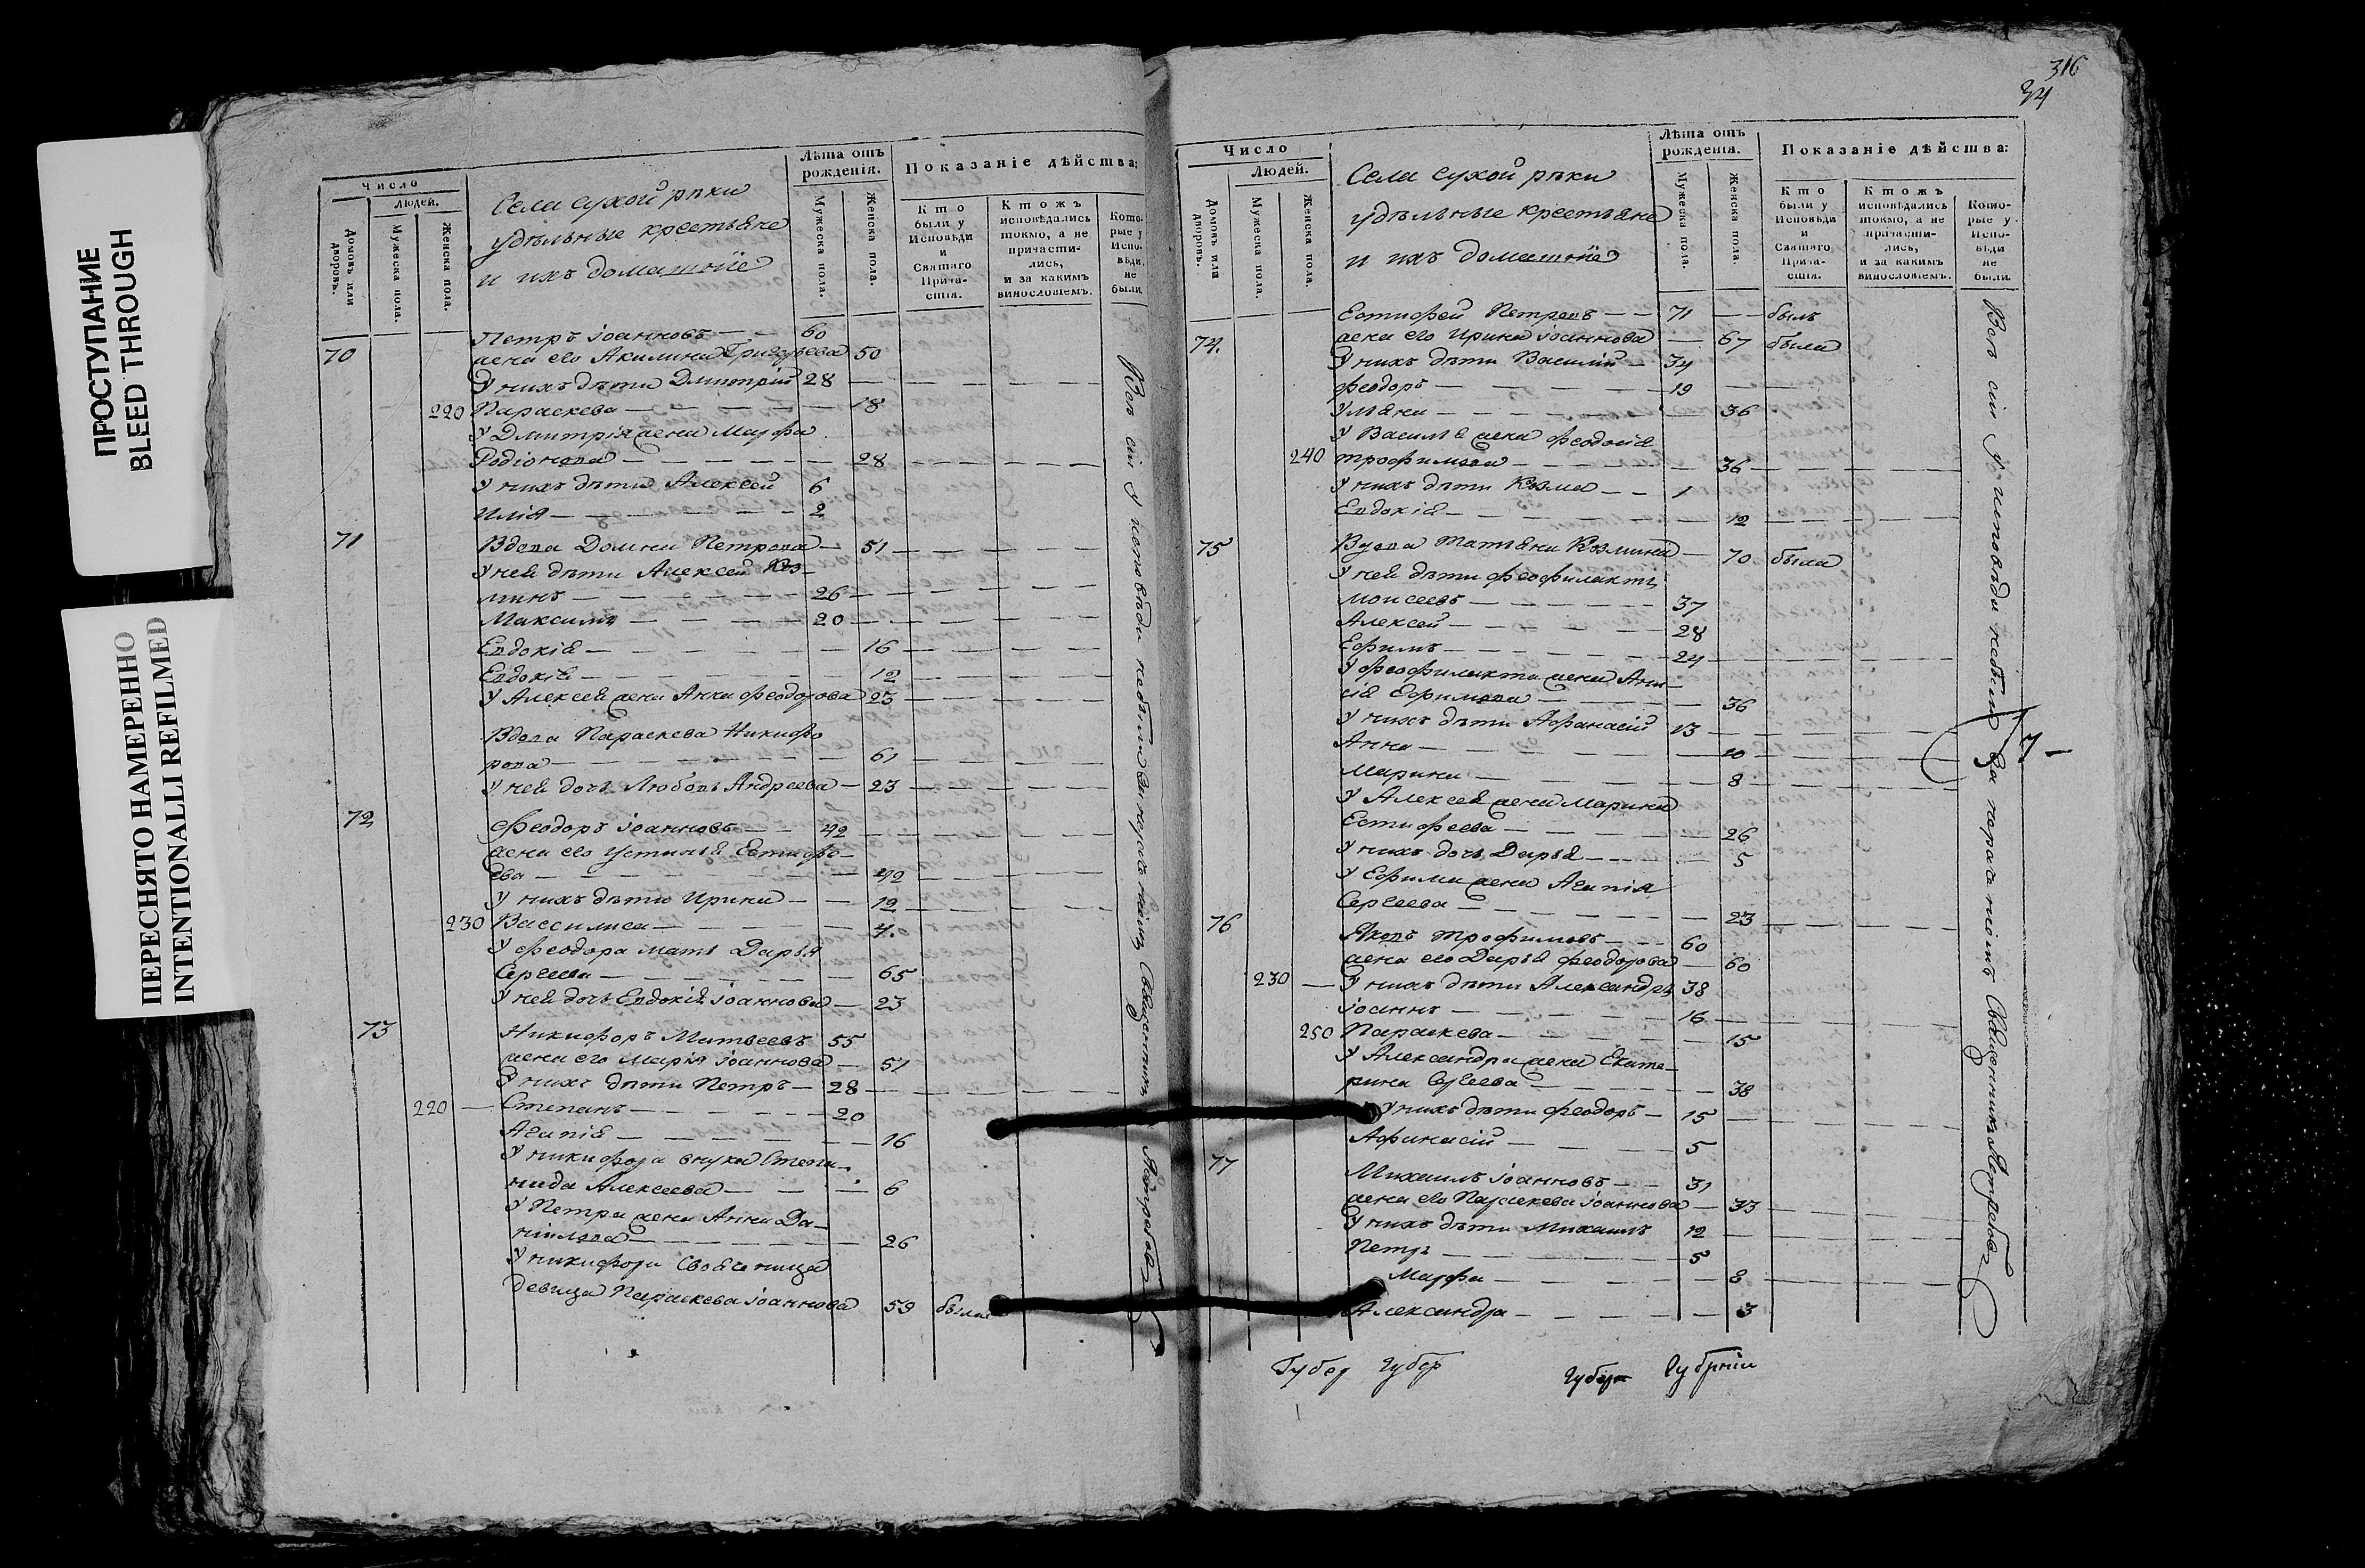 ПРОСТУПАНИЕ
BLEED THROUGH
ПЕРЕСНЯТО НАМЕРЕННО
INTENTIONALLI REFILMED
Число
Людей.
Домовъ или дворовъ.
Мужеска пола.
Женска пола.
Села сухой рѣки
удѣльные крестьяне
и ихъ домашніе
Лѣта отъ рожденія.
Мужеска пола.
Женска пола.
Показаніе дѣйства:
Кто были у Исповѣди и Святаго Прича-стія.
Ктожъ исповѣдались токмо, а не причасти-лись, и за какимъ винословіемъ.
Кото-рые у Испо-вѣди не были.
70 Петръ Іоанновъ — — 60
жена его Акилина Григорьева 50
У нихъ дѣти Дмитрій 28 —
220 Параскева — — — 18
У Дмитрія жена Марфа
Родіонова — — — 28
У нихъ дѣти Алексей 6
Илія — — — 2
71 Вдова Домна Петрова — 51
У ней дѣти Алексей Коз-
минъ — — — 26
Максимъ — — — 20
Евдокія — — — 16
Евдокія — — — 12
У Алексея жена Анна Феодорова 23
Вдова Параскева Никифо
рова — — — 61
У ней дочь Любовь Андреева — 23
72 Феодоръ Іоанновъ — — 42
жена его Устинья Естифе-
ева — — — 42
У нихъ дѣти Ирина — — 12
230 Васси­лиса — — — 4.
У Феодора мать Дарья
Сергеева — — — 65
У ней дочь Евдокія Іоаннова — 23
73 Никифоръ Матвеевъ 55
жена его Марія Іоаннова — 51
У нихъ дѣти Петръ — 28
220 — Степанъ — — — 20
Агапія — — — 16
У Никифора внука Степа-
нида Алексеева — — — 6
У Петра жена Анна Да-
ніилова — — — 26
У Никифора свояченица
девица Параскева Іоаннова 59 была
Всѣ сіи у исповѣди небыли Священникъ
316
34
Число
Людей.
Домовъ или дворовъ.
Мужеска пола.
Женска пола.
Села сухой рѣки
удѣльные крестьяне
и ихъ домашніе
Лѣта отъ рожденія.
Мужеска пола.
Женска пола.
Показаніе дѣйства:
Кто были у Исповѣди и Святаго Прича-стія.
Ктожъ исповѣдались токмо, а не причасти-лись, и за какимъ винословіемъ.
Кото-рые у Испо-вѣди не были.
74. Естифей Петровъ — — 71 — — былъ
жена его Ирина Іоаннова — 67 была
У нихъ дѣти Василій — 34
Феодоръ — — — 19
Ульяна — — — 36
У Василья жена Феодосія
240 Трофимова — — — 36
У нихъ дѣти Козма — — 1
Евдокія — — — 12
75 Вдова Татьяна Козмина — 70 была
У ней дѣти Феофилактъ
Моисеевъ — — — 37
Алексей — — — 28
Ефимъ — — — 24
У Феофилакта жена Ани-
сія Ефимова — — — 36
У нихъ дѣти Афанасій 13
Анна — — — 10
Марина — — — 8
У Алексея жена Марина
Естифеева — — — 26
У нихъ дочь Дарья — — — 5
У Ефима жена Агапія
Сергеева — — — 23
76 Яковъ Трофимовъ — — 60
жена его Дарья Феодорова — 60
230 — У нихъ дѣти Александръ 38
Іоаннъ — — — 16
250 Параскева — — — 15
У Александра жена Екате-
рина Сергеева — — — 38
У нихъ дѣти Феодоръ — 15
Афанасій — — — 5
77 Михаилъ Іоанновъ — — 31
жена его Параскева Іоаннова — 33
У нихъ дѣти Михаилъ 12
Петръ — — — 5
Марфа — — — 8
Александра — — — 3
Всѣ сіи У исповѣди небыли за Священникъ
Губер Губер
Губер